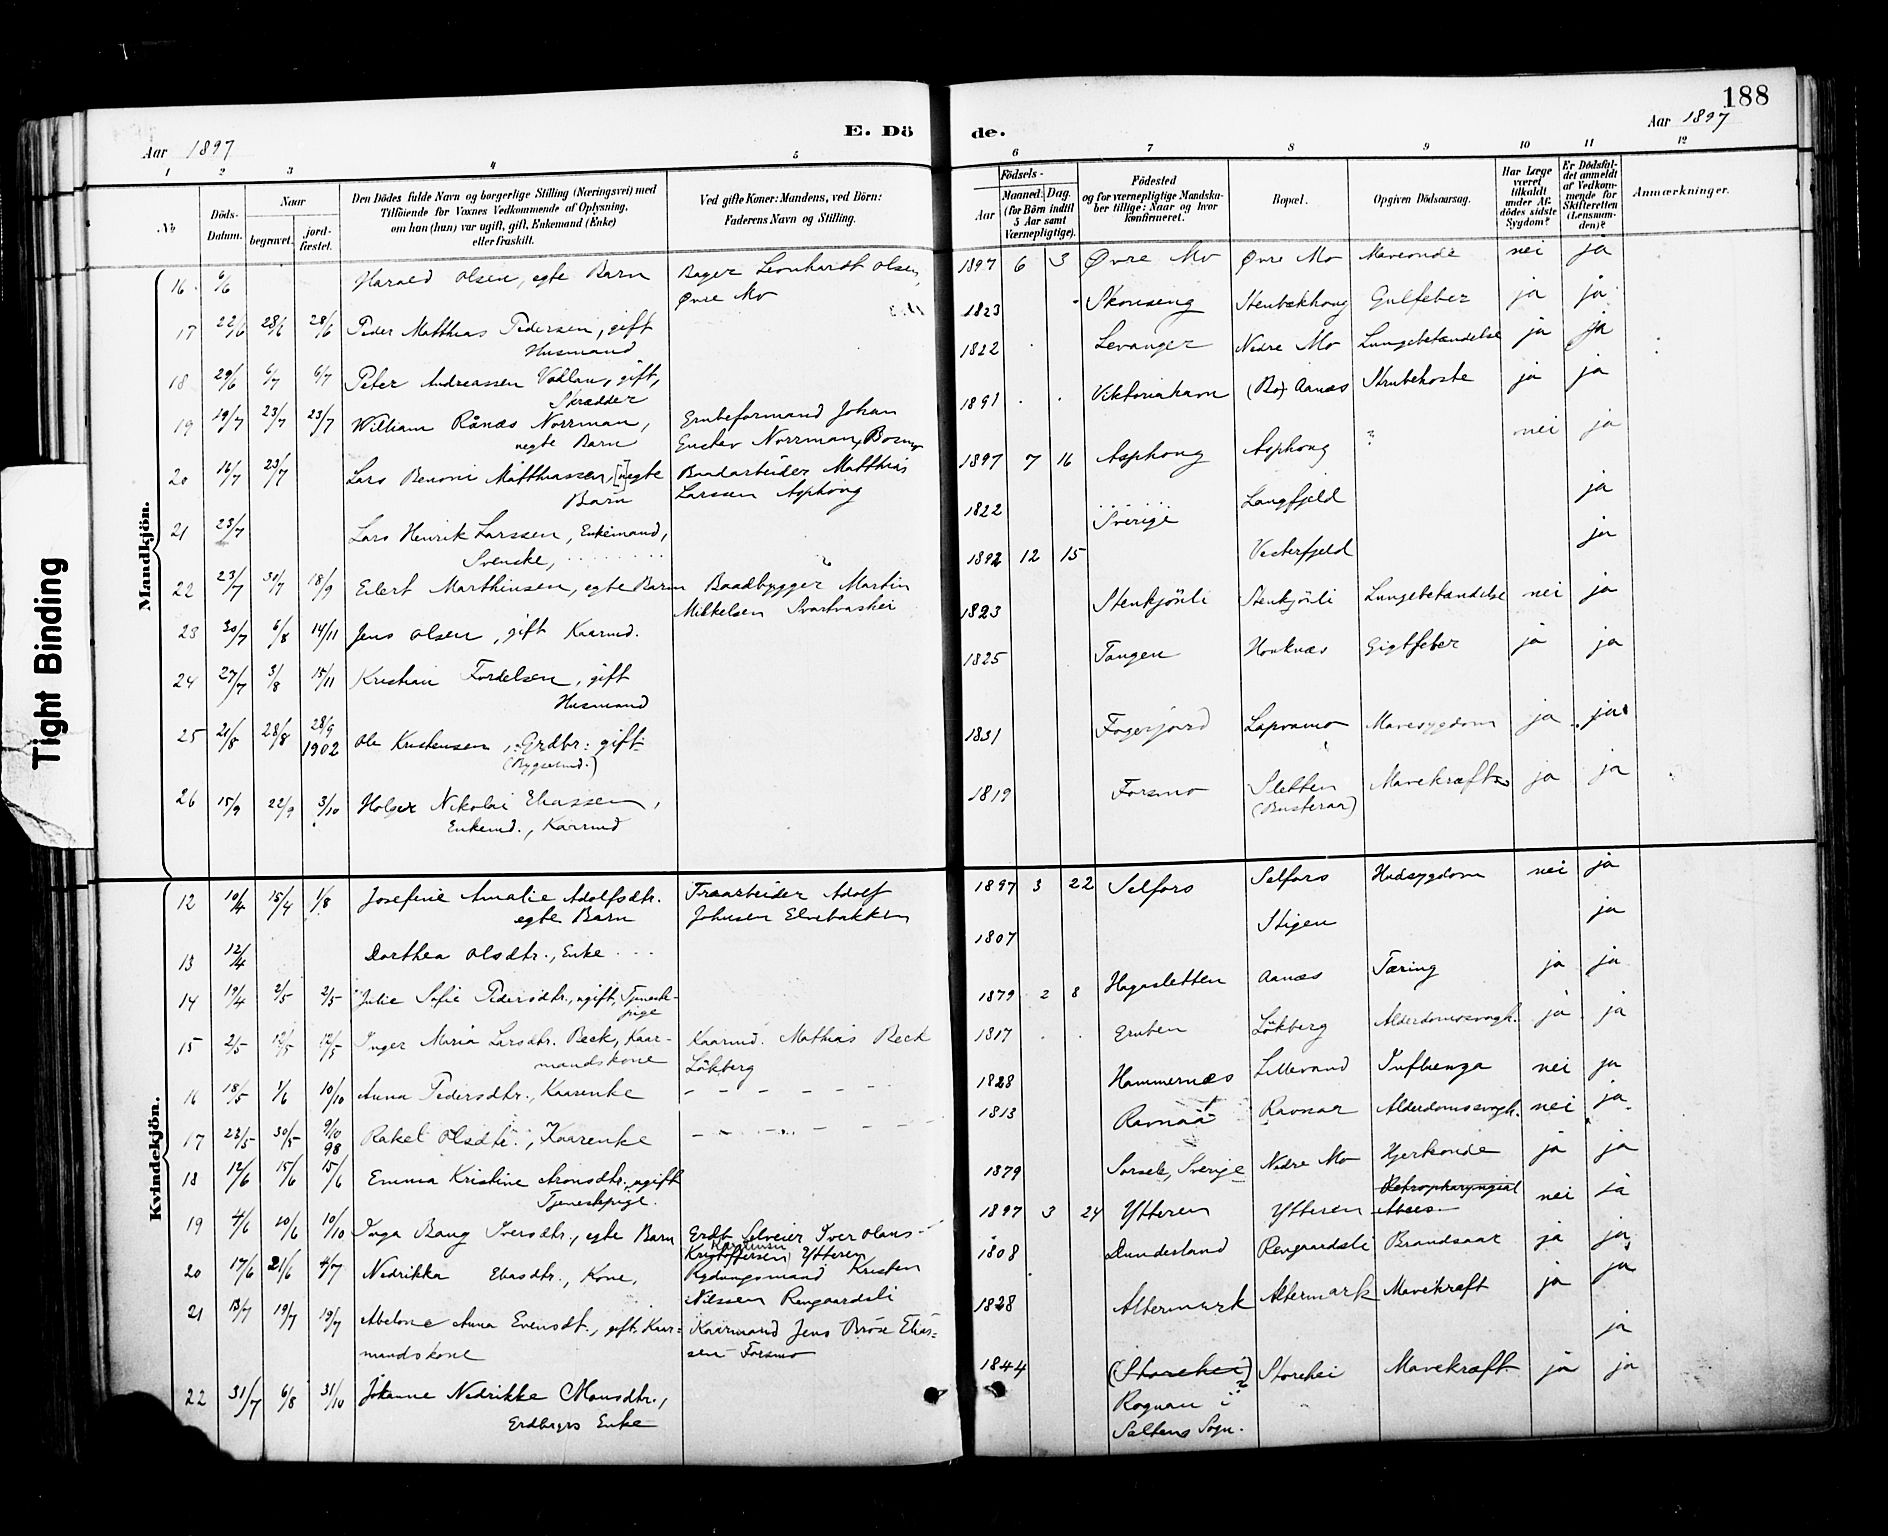 188
Aar 1897
E. Döde.
Aar 1897
1 2 3 4 5 6 7 8 9 10 11 12
№
Döds-Datum.
Naar
begravet.
jordfæstet.
Den Dödes fulde Navn og borgerlige Stilling (Næringsvei) med
Tilföiende for Voxnes Vedkommende af Oplysning,
om han (hun) var ugift, gift, Enkemand (Enke)
eller fraskilt.
Ved gifte Koner: Mandens, ved Börn:
Faderens Navn og Stilling.
Födsels-
Aar
Maaned. Dag.
(for Börn indtil
5 Aar samt
Værnepligtige).
Födested
og for værnepligtige Mandska-
ber tillige: Naar og hvor
konfirmeret.
Bopæl.
Opgiven Dödsaarsag.
Har Læge
været
tilkaldt
under Af-
dödes sidste
Sygdom?
Er Dödsfal-
det anmeldt
af Vedkom-
mende for
Skifteretten
(Lensman-
den)?
Anmærkninger.
Tight Binding
Mandkjön.
16. 6/6 Harald Olsen, egte Barn Bager Leonhardt Olsen, Øvre Mo 1897 6 3 Øvre Mo Øvre Mo Maveonde nei ja
17 22/6 28/6 28/6 Peder Matthias Pedersen, gift Husmand 1823 Skonseng Stenbækhaug Gulfeber ja ja
18 29/6 6/7 6/7 Peter Andreassen Vollan, gift, Skrædder 1822 Levanger Nedre Mo Lungebetændelse ja ja
19 19/7 23/7 23/7 William Rånæs Norrman, uegte Barn Grubeformand Johan Gustav Norrman, Bosmo 1891 Viktoriahavn (Bo) Aanæs Strubehoste ja ja
20 16/7 23/7 Lars Benoni Matthiassen, [u]egte Barn Baadarbeider Matthias Larssen Asphoug 1897 7 16 Asphoug Asphoug ? nei ja
21 23/7 Lars Henrik Larssen, Enkemand, Svenske, 1822 Sverige Langfjeld ja
22 23/7 30/7 18/9 Eilert Marthinsen, egte Barn Baadbygger Martin Mikkelsen Svartvashei 1892 12 15 Vesterfjeld ja
23 30/7 6/8 14/11 Jens Olsen, gift Kaarmd. 1823 Stenkjönli Stenkjönli Lungebetændelse nei ja
24 27/7 3/8 15/11 Kristian Fordelsen, gift Husmand 1825 Tangen Hauknæs Gigtfeber ja ja
25 21/8 28/8 28/9 1902 Ole Kristensen, Grdbr: gift (Bygselmd.) 1831 Fagerjord Lapvamo Mavesygdom ja ja
26 15/9 22/9 3/10 Holger Nikolai Eliassen, Enkemd., Kaarmd 1819 Forsmo Sletten (Busteraa) Mavekræft ja ja
Kvindekjön.
12 10/4 15/4 1/8 Josefine Amalie Adolfsdtr. egte Barn Træarbeider Adolf Johnsen Elvebakken 1897 3 22 Selfors Selfors Hudsygdom nei ja
13 12/4 Dorthea Olsdtr., Enke 1807 Stigen ja
14 19/4 2/5 2/5 Julie Sofie Pedersdtr., ugift, Tjeneste-pige 1879 2 8 Hagasletten Aanæs Tæring ja ja
15 2/5 12/5 12/5 Inger Maria Larsdtr. Beck, Kaar-mandskone Kaarmd. Mathias Beck Lökberg 1817 Gruben Lökberg Alderdomssvagh. ja ja
16 18/5 1/6 10/10 Anna Pedersdtr., Kaarenke 1828 Hammernæs Lillevand Influenza nei ja
17 23/5 30/5 9/10 98 Rakel Olsdtr., Kaarenke 1813 Ravnaå Ravnaa Alderdomssvagh. nei ja
18 12/6 15/6 15/6 Emma Kristine Aronsdtr., ugift Tjenestepige. 1879 Sorsele, Sverige Nedre Mo Hjerteonde ja ja
19 4/6 10/6 10/10 Inga Bang Iversdtr., egte Barn Grdb. Selveier Iver Olaus Kristoffersen Ytteren 1897 3 24 Ytteren Ytteren Retropharyngial Absces nei ja
20 17/6 21/6 4/7 Nedrikka Eliasdtr., Kone, Rydningsmand Kristen Nilssen Rengaardsli 1808 Dunderland Rengaardsli Brandsaar ja ja
21 13/7 19/7 19/7 Abelone Anna Evensdt., gift, Kaar-mandskone Kaarmand Jens Bröse Elias-sen Forsmo 1828 Altermark Altermark Mavekræft ja ja
ja
22 31/7 6/8 31/10 Johanne Nedrikke Monsdtr., Grdbrgrs Enke 1844 (Storehei) ? Rognan i Saltens Sogn. Storehei Mavekræft ja ja